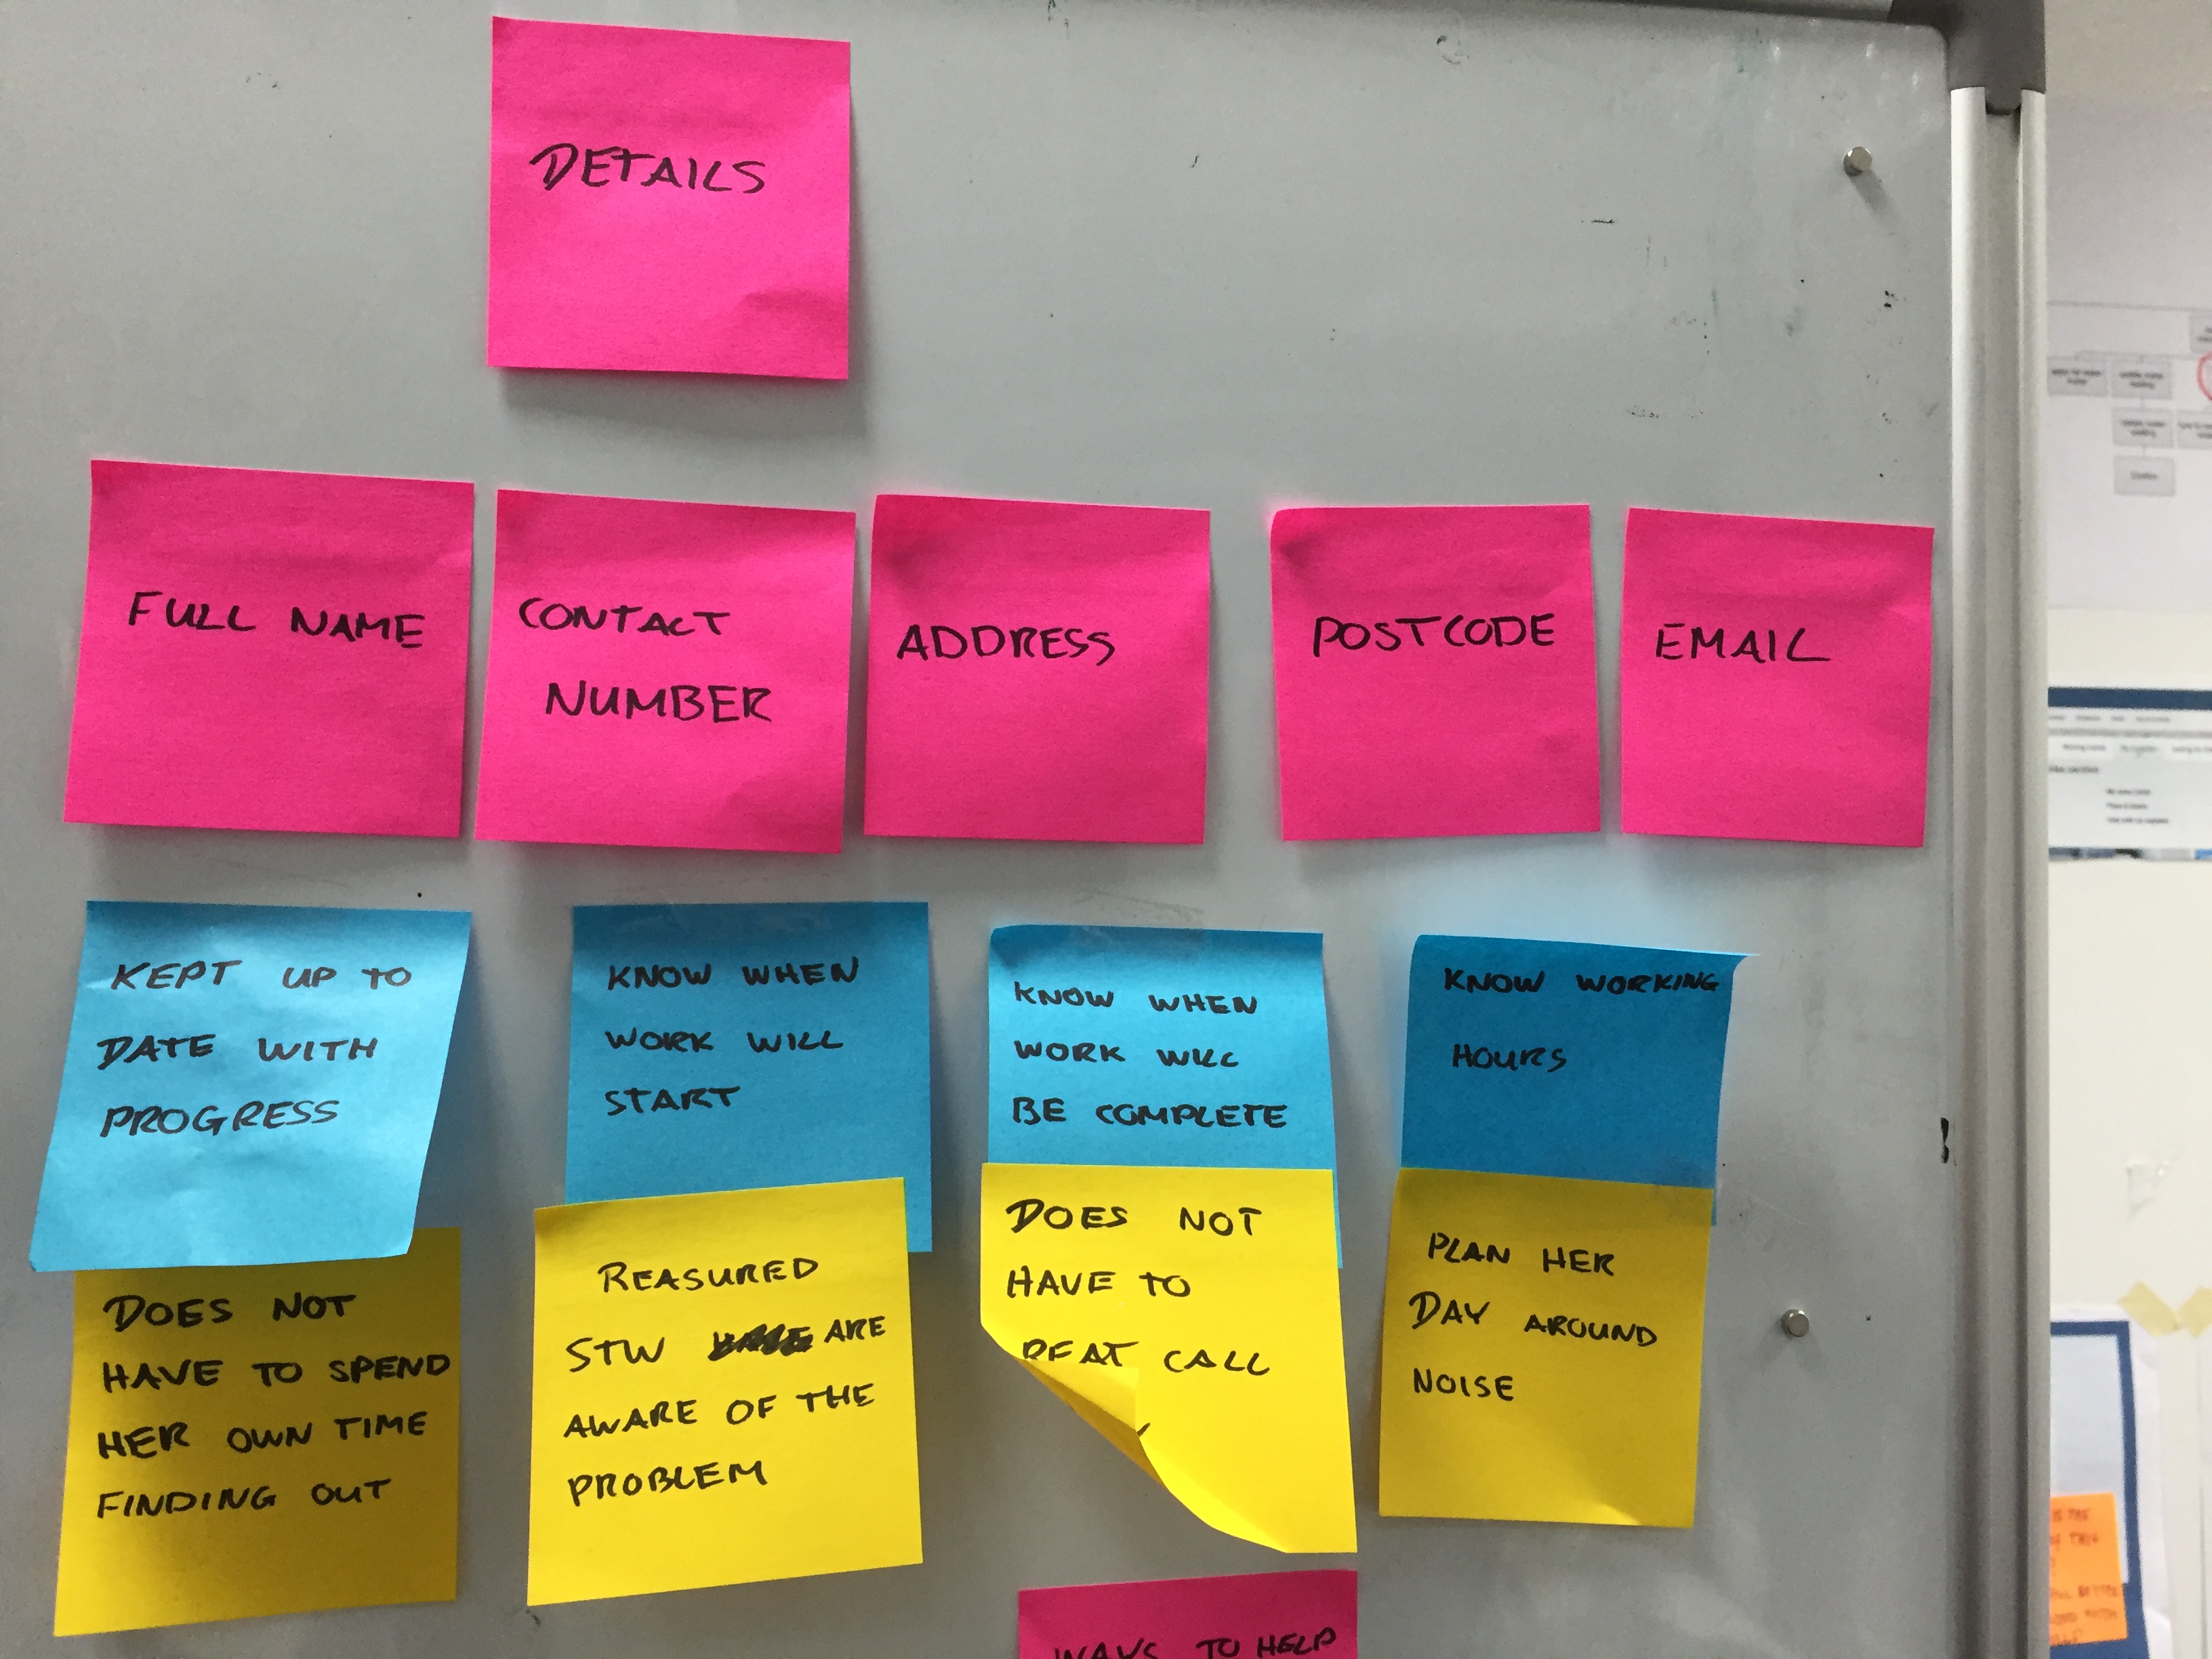 DETAILS
FULL NAME
CONTACT
NUMBER
ADDRESS
POSTCODE
EMAIL
KEPT UP TO
DATE WITH
PROGRESS
KNOW WHEN
WORK WILL
START
KNOW WHEN
WORK WILL
BE COMPLETE
KNOW WORKING
HOURS
DOES NOT
HAVE TO SPEND
HER OWN TIME
FINDING OUT
REASURED
STW ARE
AWARE OF THE
PROBLEM
DOES NOT
HAVE TO
CALL
PLAN HER
DAY AROUND
NOISE
WAYS TO HELP